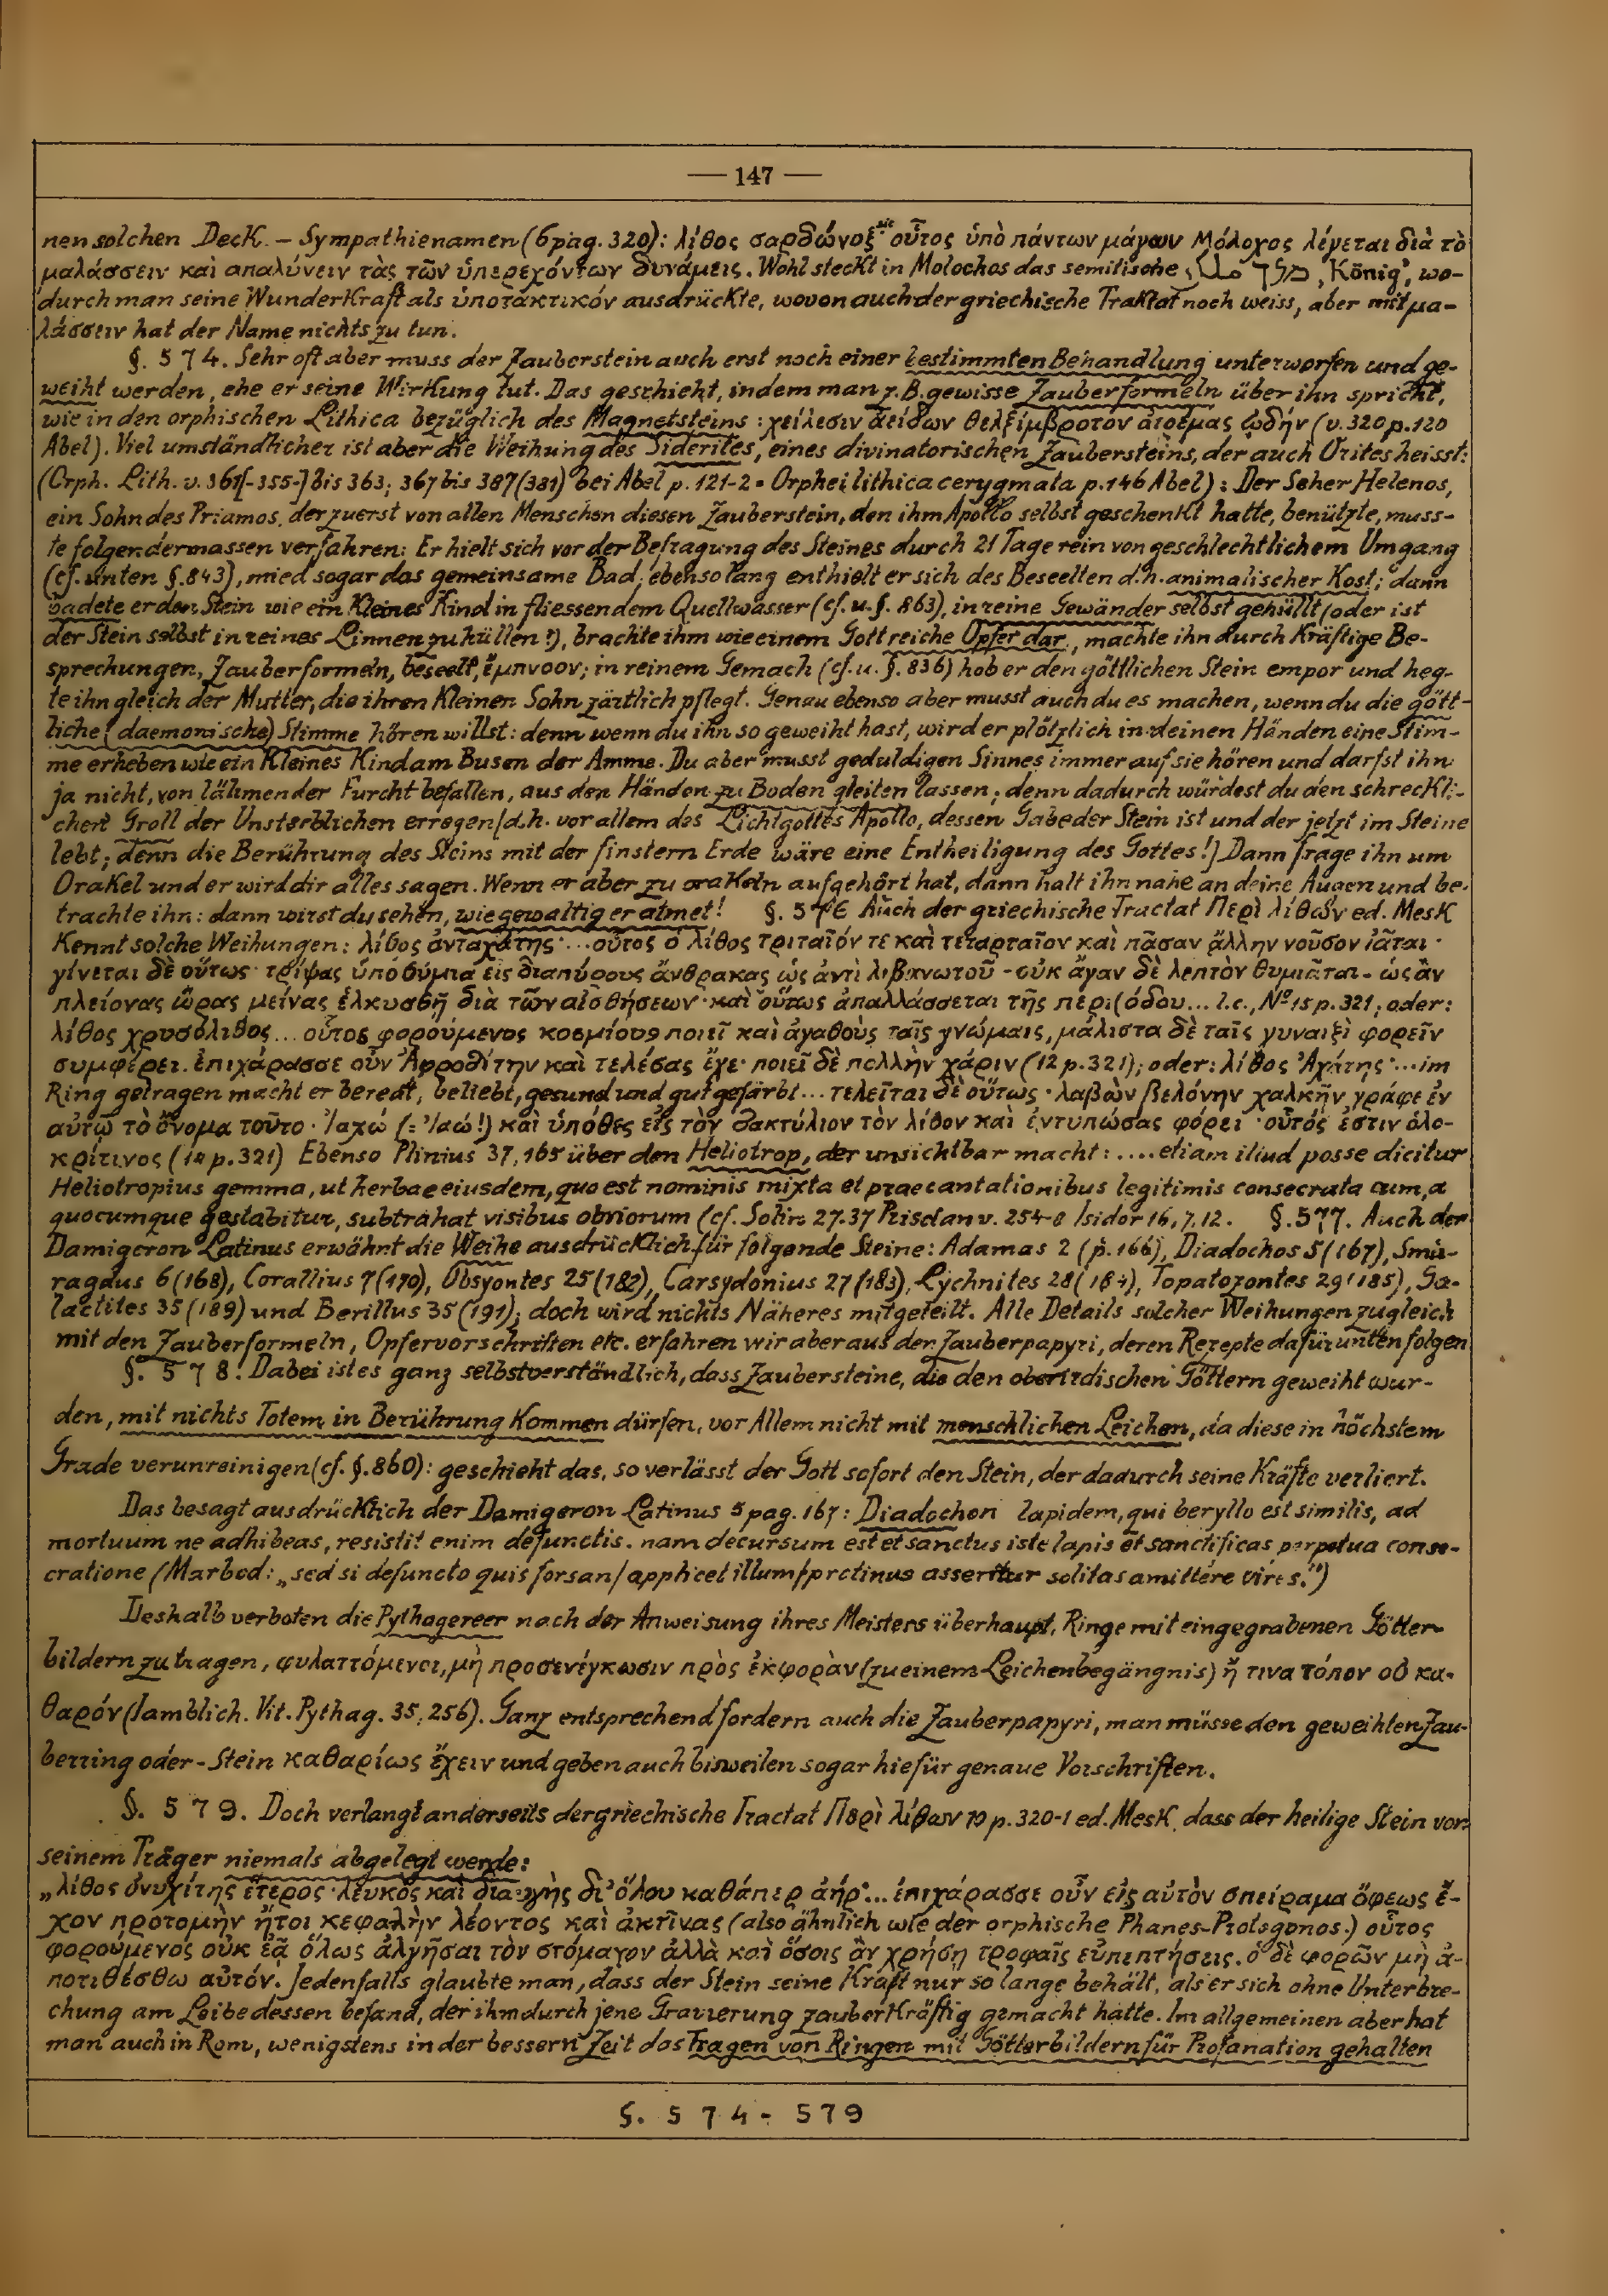 — 147 —
nen solchen Deck. – Sympathienamen (6 pag. 320): λίθος σαρδώνυξ οὗτος ὑπὸ πάντων μάγων Μόλοχος λέγεται διὰ τὸ
μαλάσσειν καὶ απαλύνειν τὰς τῶν ὑπερεχόντων δυνάμεις. Wohl steckt in Molochos das semitische ملك מלך, „König“, wo-
durch man seine Wunderkraft als ὑποτακτικόν ausdrückte, wovon auch der griechische Traktat noch weiss, aber mit μα-
λάσσειν hat der Name nichts zu tun.
§. 574. Sehr oft aber muss der Zauberstein auch erst noch einer bestimmten Behandlung unterworfen und ge-
weiht werden, ehe er seine Wirkung tut. Das geschieht, indem man z.B. gewisse Zauberformeln über ihn spricht,
wie in den orphischen Lithica bezüglich des Magnetsteins: χείλεσιν ἀείδων θελξίμβροτον ἀτρέμας ᾠδήν (v. 320 p. 120
Abel). Viel umständlicher ist aber die Weihung des Siderites, eines divinatorischen Zaubersteins, der auch Orites heisst:
(Orph. Lith. v. 361[-355-] bis 363; 367 bis 387 (381) bei Abel p. 121-2 = Orphei lithica cerygmata p. 146 Abel): Der Seher Helenos,
ein Sohn des Priamos, der zuerst von allen Menschen diesen Zauberstein, den ihm Apollo selbst geschenkt hatte, benützte, muss-
te folgendermassen verfahren: Er hielt sich vor der Befragung des Steines durch 21 Tage rein von geschlechtlichem Umgang
(cf. unten §. 843), mied sogar das gemeinsame Bad; ebenso lang enthielt er sich des Beseelten d.h. animalischer Kost; dann
badete er den Stein wie ein kleines Kind in fliessendem Quellwasser (cf. u. §. 863), in reine Gewänder selbst gehüllt (oder ist
der Stein selbst in reines Linnen zu hüllen?), brachte ihm wie einem Gott reiche Opfer dar, machte ihn durch kräftige Be-
sprechungen, Zauberformeln, beseelt, ἔμπνοον; in reinem Gemach (cf. u. §. 836) hob er den göttlichen Stein empor und heg-
te ihn gleich der Mutter, die ihren kleinen Sohn zärtlich pflegt. Genau ebenso aber musst auch du es machen, wenn du die gött-
liche (daemonische) Stimme hören willst: denn wenn du ihn so geweiht hast, wird er plötzlich in deinen Händen eine Stim-
me erheben wie ein kleines Kind am Busen der Amme. Du aber musst geduldigen Sinnes immer auf sie hören und darfst ihn
ja nicht, von lähmender Furcht befallen, aus den Händen zu Boden gleiten lassen; denn dadurch würdest du den schreckli-
chen Groll der Unsterblichen erregen [d.h. vor allem des Lichtgottes Apollo, dessen Gabe der Stein ist und der jetzt im Steine
lebt; denn die Berührung des Steins mit der finstern Erde wäre eine Entheiligung des Gottes!] Dann frage ihn um
Orakel und er wird dir alles sagen. Wenn er aber zu orakeln aufgehört hat, dann halt ihn nahe an deine Augen und be-
trachte ihn: dann wirst du sehen, wie gewaltig er atmet! §. 576 Auch der griechische Tractat Περὶ λίθων ed. Mesk
kennt solche Weihungen: λίθος ἀνταχάτης ... οὗτος ὁ λίθος τριταῖόν τε καὶ τεταρταῖον καὶ πᾶσαν ἄλλην νοῦσον ἰᾶται ·
γίνεται δὲ οὕτως · τρίψας ὑποθύμια εἰς διαπύρους ἄνθρακας ὡς ἀντὶ λιβανωτοῦ - οὐκ ἄγαν δὲ λεπτὸν θυμιᾶται - ὡς ἂν
πλείονας ὥρας μείνας ἑλκυσθῇ διὰ τῶν αἰσθήσεων · καὶ οὕτως ἀπαλλάσσεται τῆς περιόδου ... l.c., Nº 15 p. 321; oder:
λίθος χρυσόλιθος ... οὗτος φορούμενος κοσμίους ποιεῖ καὶ ἀγαθοὺς ταῖς γνώμαις, μάλιστα δὲ ταῖς γυναιξὶ φορεῖν
συμφέρει. ἐπιχάρασσε οὖν Ἀφροδίτην καὶ τελέσας ἔχε · ποιεῖ δὲ πολλὴν χάριν (12 p. 321); oder: λίθος Ἀχάτης · ... im
Ring getragen macht er beredt, beliebt, gesund und gut gefärbt ... τελεῖται δὲ οὕτως · λαβὼν βελόνην χαλκῆν γράφε ἐν
αὐτῷ τὸ ὄνομα τοῦτο · Ἰαχώ (= Ἰαώ!) καὶ ὑπόθες εἰς τὸν δακτύλιον τὸν λίθον καὶ ἐντυπώσας φόρει · οὗτός ἐστιν ὁλο-
κρίτινος (14 p. 321) Ebenso Plinius 37, 165 über den Heliotrop, der unsichtbar macht: .... etiam illud posse dicitur
Heliotropius gemma, ut herbae eiusdem, quo est nominis mixta et praecantationibus legitimis consecrata eum, a
quocumque gestabitur, subtrahat visibus obviorum (cf. Solin 27.37 Priscian v. 254-8 Isidor 16, 7. 12. §. 577. Auch der
Damigeron Latinus erwähnt die Weihe ausdrücklich für folgende Steine: Adamas 2 (p. 166), Diadochos 5 (167), Sma-
ragdus 6 (168), Corallius 7 (170), Obsyontes 25 (182), Carsydonius 27 (183), Lychnites 28 (184), Topatozontes 29 (185), Ga-
lactites 35 (189) und Berillus 35 (191); doch wird nichts Näheres mitgeteilt. Alle Details solcher Weihungen zugleich
mit den Zauberformeln, Opfervorschriften etc. erfahren wir aber aus den Zauberpapyri, deren Rezepte dafür unten folgen
§. 578. Dabei ist es ganz selbstverständlich, dass Zaubersteine, die den oberirdischen Göttern geweiht wur-
den, mit nichts Totem in Berührung kommen dürfen, vor Allem nicht mit menschlichen Leichen, da diese in höchstem
Grade verunreinigen (cf. §. 860): geschieht das, so verlässt der Gott sofort den Stein, der dadurch seine Kräfte verliert.
Das besagt ausdrücklich der Damigeron Latinus 5 pag. 167: Diadochon lapidem, qui beryllo est similis, ad
mortuum ne adhibeas, resistit enim defunctis. nam decursum est et sanctus iste lapis et sanctificas perpetua conse-
cratione (Marbod: „sed si defuncto quis forsan / applicet illum / protinus asseritur solitas amittere vires.“)
Deshalb verboten die Pythagereer nach der Anweisung ihres Meisters überhaupt, Ringe mit eingegrabenen Götter-
bildern zu tragen, φυλαττόμενοι, μὴ προσενέγκωσιν πρὸς ἐκφορὰν (zu einem Leichenbegängnis) ἤ τινα τόπον οὐ κα-
θαρόν (Iamblich. Vit. Pythag. 35, 256). Ganz entsprechend fordern auch die Zauberpapyri, man müsse den geweihten Zau-
berring oder - Stein καθαρίως ἔχειν und geben auch bisweilen sogar hiefür genaue Vorschriften.
§. 579. Doch verlangt anderseits der griechische Tractat Περὶ λίθων 10 p. 320-1 ed. Mesk, dass der heilige Stein von
seinem Träger niemals abgelegt werde:
„λίθος ὀνυχίτης ἕτερος · λευκὸς καὶ διαυγὴς δι' ὅλου καθάπερ ἀήρ ... ἐπιχάρασσε οὖν εἰς αὐτὸν σπείραμα ὄφεως ἔ-
χον προτομὴν ἤτοι κεφαλὴν λέοντος καὶ ἀκτῖνας (also ähnlich wie der orphische Phanes-Protogonos.) οὗτος
φορούμενος οὐκ ἐᾷ ὅλως ἀλγῆσαι τὸν στόμαχον ἀλλὰ καὶ ὅσοις ἂν χρήσῃ τροφαῖς εὐπεπτήσεις. ὁ δὲ φορῶν μὴ ἀ-
ποτιθέσθω αὐτόν. Jedenfalls glaubte man, dass der Stein seine Kraft nur so lange behält, als er sich ohne Unterbre-
chung am Leibe dessen befand, der ihm durch jene Gravierung zauberkräftig gemacht hatte. Im allgemeinen aber hat
man auch in Rom, wenigstens in der bessern Zeit das Tragen von Ringen mit Götterbildern für Profanation gehalten
§. 574 - 579